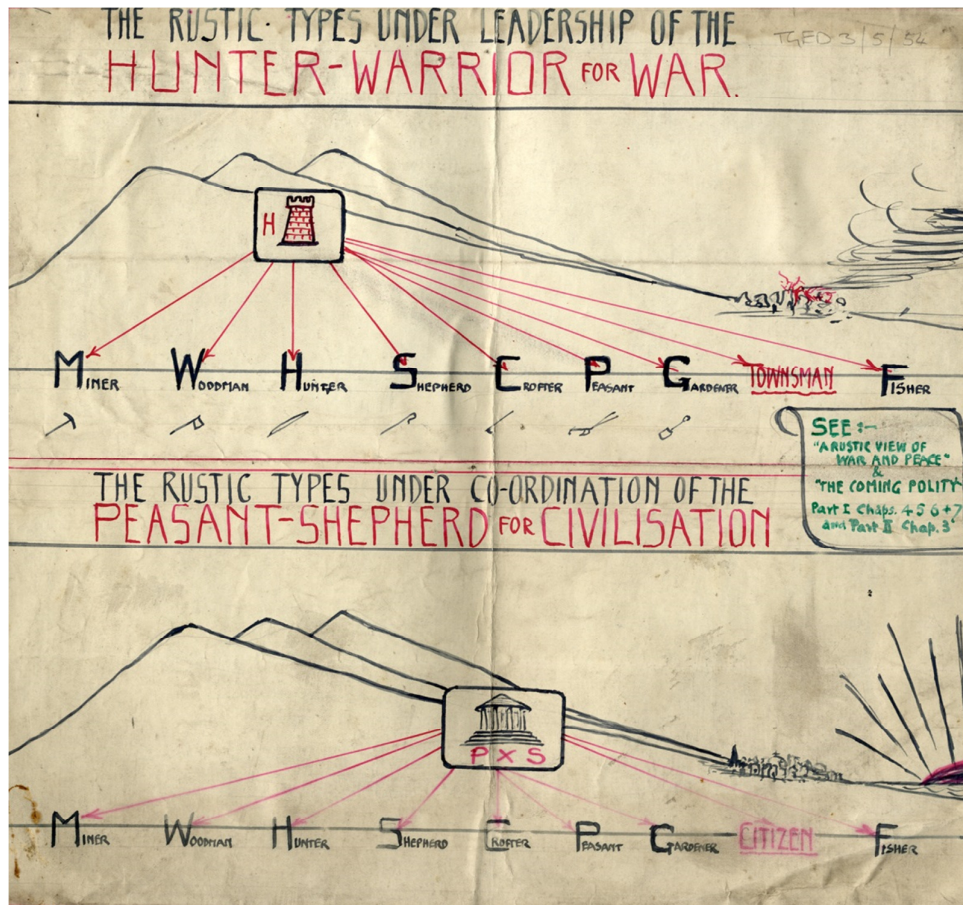 THE RUSTIC TYPES UNDER LEADERSHIP OF THE
HUNTER-WARRIOR FOR WAR.
TGED 3/5/54
H
MINER WOODMAN HUNTER SHEPHERD CROFTER PEASANT GARDENER TOWNSMAN FISHER
SEE:-
"A RUSTIC VIEW OF
WAR AND PEACE"
&
"THE COMING POLITY"
Part I Chaps. 4 5 6 + 7
and Part II Chap. 3
THE RUSTIC TYPES UNDER CO-ORDINATION OF THE
PEASANT-SHEPHERD FOR CIVILISATION
P X S
MINER WOODMAN HUNTER SHEPHERD CROFTER PEASANT GARDENER CITIZEN FISHER